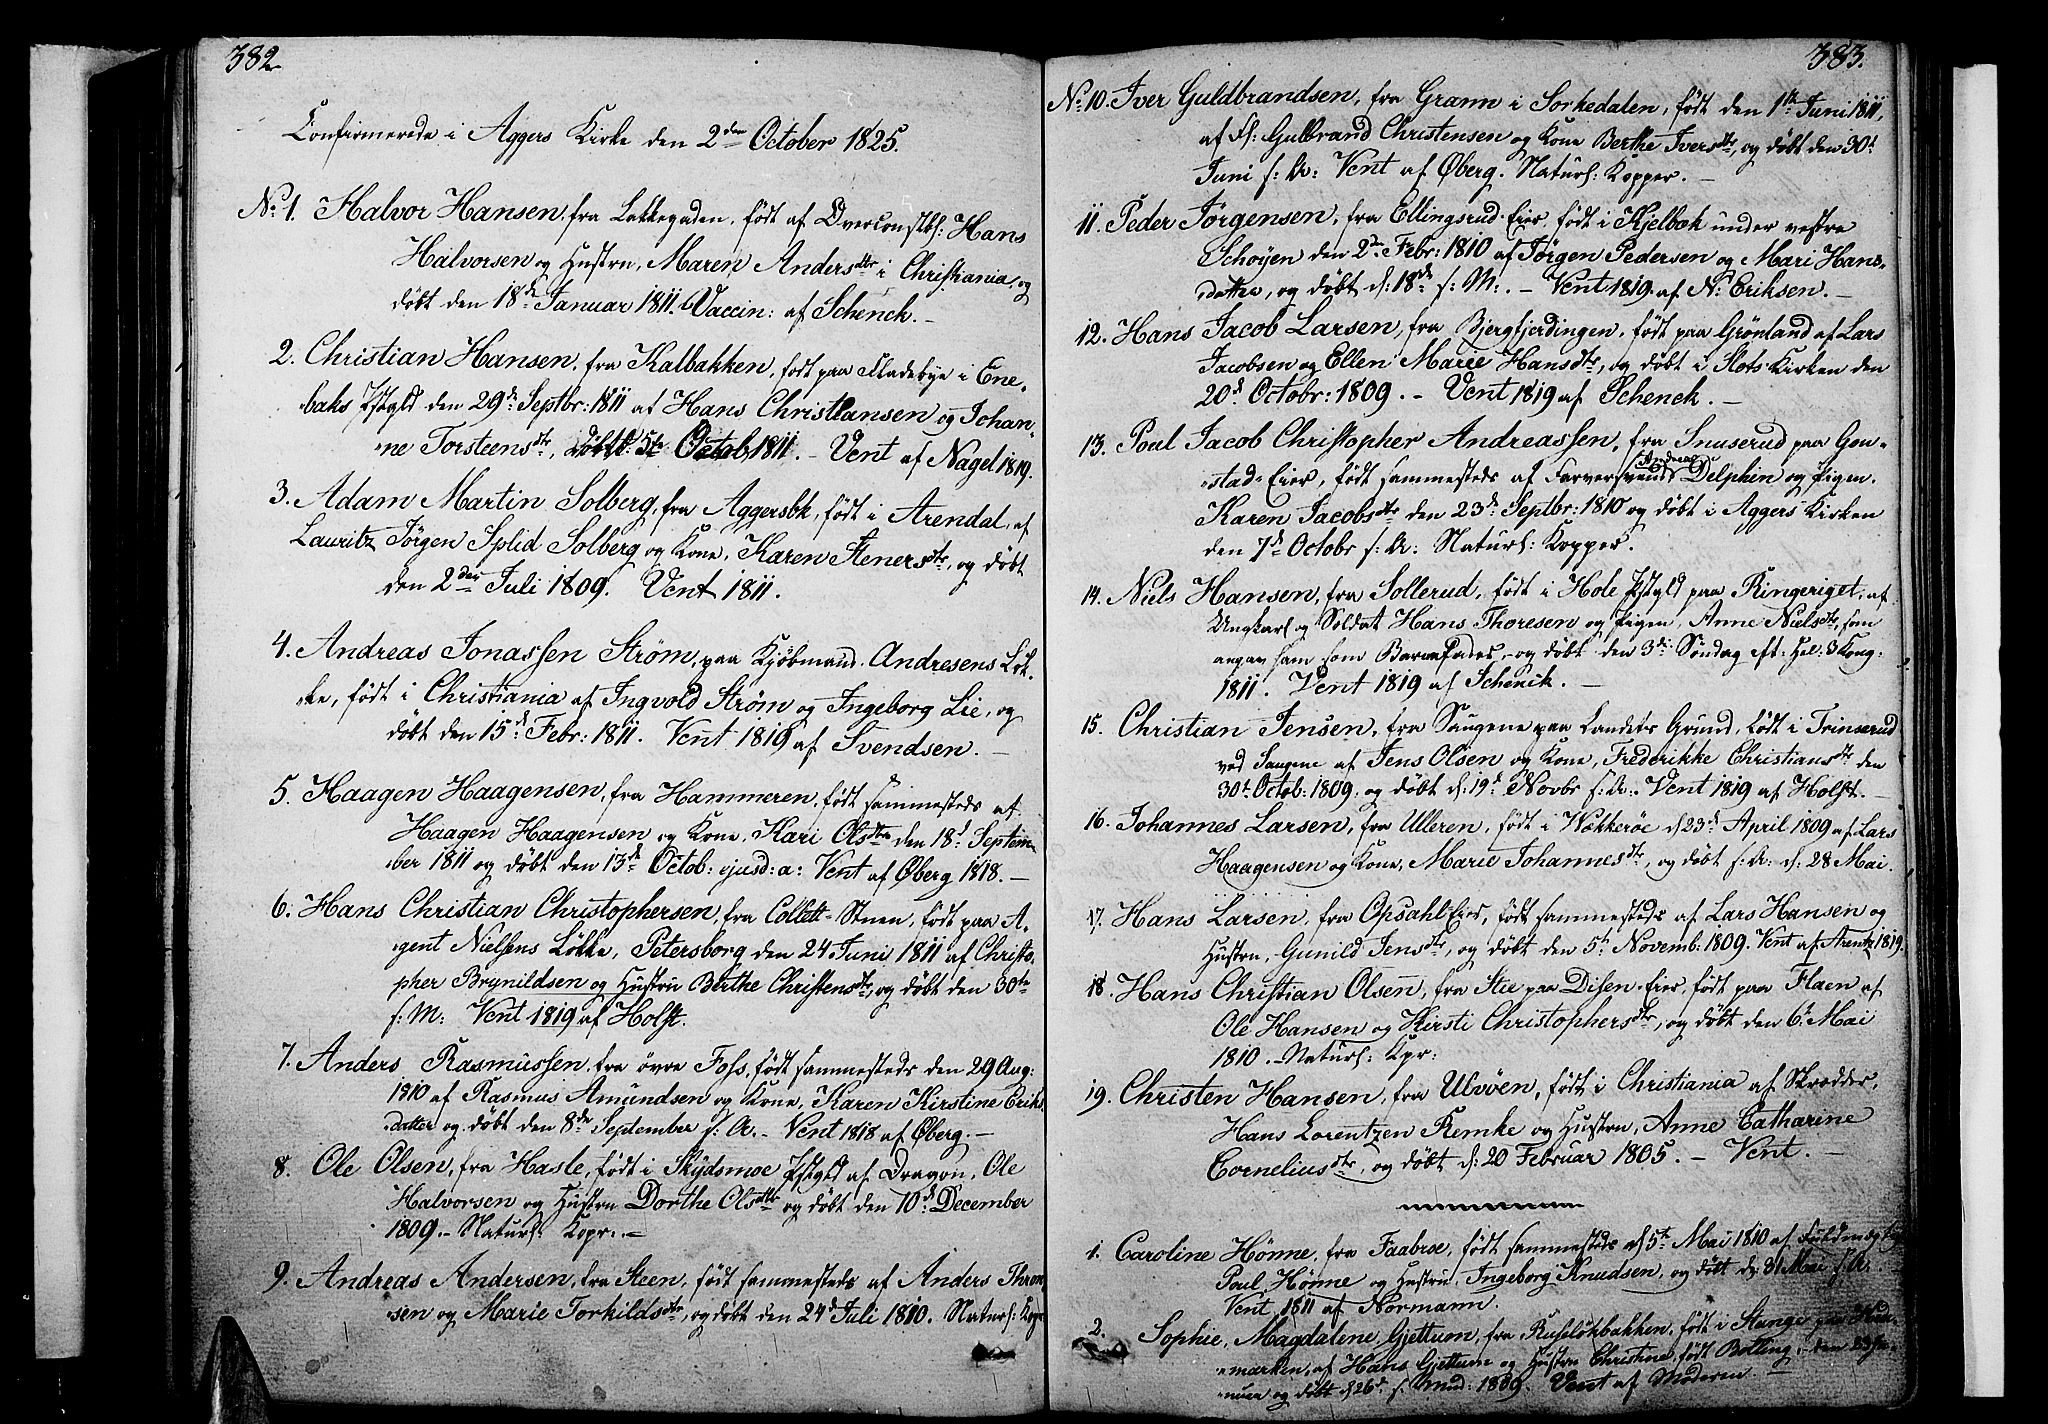 382
Confirmerede i Aggers Kirke den 2den October 1825.
No 1. Halvor Hansen, fra Løkkegaden, født af Overconstbl: Hans
Halvorsen og Hustru, Maren Andersdtr i Christiania, og
døbt den 18de Januar 1811. Vaccin: af Schenck.
2. Christian Hansen, fra Kalbakken, født paa Fladebye i Ene-
baks Pstgld den 29de Septbr: 1811 af Hans Christiansen og Johan-
ne Torsteensdtr, døbt d: 5te Octob 1811. Vent af Nagel 1819.
3. Adam Martin Solberg, fra Aggersbk, født i Arendal, af
Lauritz Jørgen Splid Solberg og Kone, Karen Stenersdtr, og døbt
den 2den Juli 1809. Vent 1811.
4. Andreas Jonassen Strøm, paa Kjøbmand Andresens Løk-
ke, født i Christiania af Ingvold Strøm og Ingeborg Lie, og
døbt den 15de Febr: 1811. Vent 1819 af Svendsen.
5. Haagen Haagensen, fra Hammeren, født sammesteds af
Haagen Haagensen og Kone, Kari Olsdtr den 18d Septem-
ber 1811 og døbt den 13de Octob: ejusd: a: Vent af Øberg 1818.
6. Hans Christian Christophersen, fra Collett-Stuen, født paa A-
gent Nielsens Løkke, Petersborg den 24 Juni 1811 af Christo-
pher Brynildsen og Hustru Berthe Christensdtr, og døbt den 30te
s: M: Vent 1819 af Holst.
7. Anders Rasmussen, fra øvre Foss, født sammesteds den 29 Aug:
1810 af Rasmus Amundsen og Kone, Karen Kirstine Eriks-
datter og døbt den 8de September s: A. Vent 1818 af Øberg.
8. Ole Olsen, fra Hasle, født i Skydsmoe Pstgld af Dragon, Ole
Halvorsen og Hustru Dorthe Olsdtr og døbt den 10de December
1809. Naturl: Kopr:
9. Andreas Andersen, fra Steen, født sammesteds af Anders Thron-
sen og Marie Torkildsdtr, og døbt den 24d Juli 1810. Naturl: Kopr
383.
No 10. Iver Guldbrandsen, fra Grann i Sørkedalen, født den 1ste Juni 1811,
af Fl: Gulbrand Christensen og Kone Berthe Iversdtr, og døbt den 30t
Juni s: A: Vent af Øberg. Naturl: Kopper.
11. Peder Jørgensen, fra Ellingsrud-Eier, født i Kjelbok under vestre
Schøyen den 2de Febr: 1810 af Jørgen Pedersen og Mari Hans-
datter, og døbt d: 18de s: M. Vent 1819. af N: Eriksen.
12. Hans Jacob Larsen, fra Bjergfjerdingen, født paa Grønland af Lars
Jacobsen og Ellen Marie Hansdtr, og døbt i Slots Kirken den
20d Octobr: 1809. Vent 1819 af Schenck.
13. Poul Jacob Christopher Andreassen, fra Snuserud paa Gou-
stad-Eier, født sammesteds af Farversvend Andreas Delphin og Pigen,
Karen Jacobsdtr den 23d Septbr: 1810 og døbt i Aggers Kirken
den 7d Octobr s: A: Naturl: Kopper.
14. Niels Hansen, fra Sollerud, født i Hole Pstgld paa Ringeriget, af
Ungkarl og Soldat Hans Thoresen og Pigen, Anne Nielsdtr, som
angav ham som Barnefader, og døbt den 3di Søndag eft: Hel: 3 Kong:
1811. Vent 1819 af Schenck.
15. Christian Jensen, fra Saugene paa Landets Grund, født i Trinserud
ved Saugene af Jens Olsen og Kone, Frederikke Christiansdtr den
30t Octob: 1809. og døbt d: 19d Novbr s: A: Vent 1819 af Holst.
16. Johannes Larsen, fra Ulleren, født i Wækkerøe d 23d April 1809 af Lars
Haagensen og Kone, Marie Johannesdtr, og døbt s: A: d: 28 Mai.
17. Hans Larsen, fra Opsahl Eier, født sammesteds af Lars Hansen og
Hustru, Gunild Jensdtr, og døbt den 5te Novemb: 1809. Vent af Arentz 1819.
18. Hans Christian Olsen, fra Stie paa Disen-Eier, født paa Flaen af
Ole Hansen og Kirsti Christophersdtr, og døbt den 6t Mai
1810. Naturl: Kpr:
19. Christen Hansen, fra Ulvøen, født i Christiania af Skredder,
Hans Lorentzen Remke og Hustru, Anne Catharine
Corneliusdtr, og døbt d: 20 Februar 1805. Vent.
1. Caroline Hønne, fra Faabroe, født sammesteds d 5te Mai 1810 af
Poul Hønne og Hustru, Ingeborg Knudsen, og døbt d: 31 Mai s: A.
Vent 1811 af Normann.
2. Sophie Magdalene Gjettum, fra Ruseløkbakken, født i Stange paa Hed-
marken, af Hans Gjettum og Hustru Christine, født Botling, den 23 Ja-
nuar og døbt d 26d s: Mnd: 1809. Vent af Moderen.